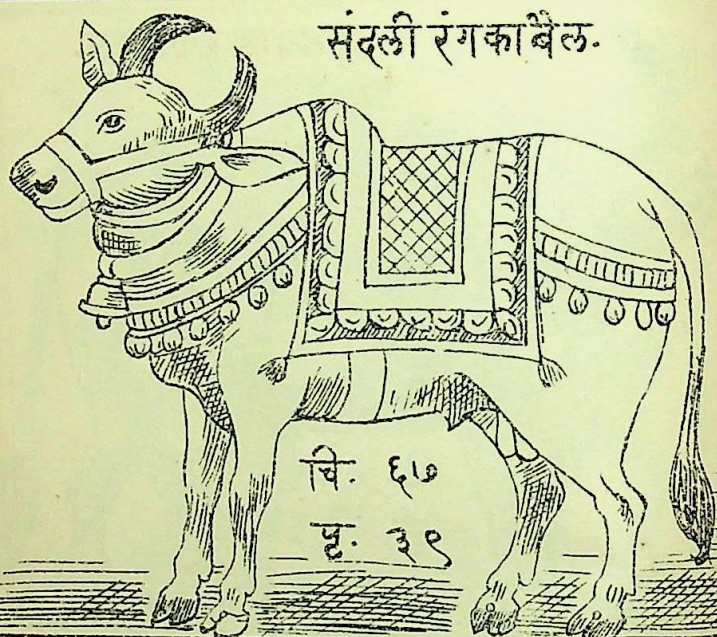 संदली रंगका बैल.
चि. ६७
पृ. ३९